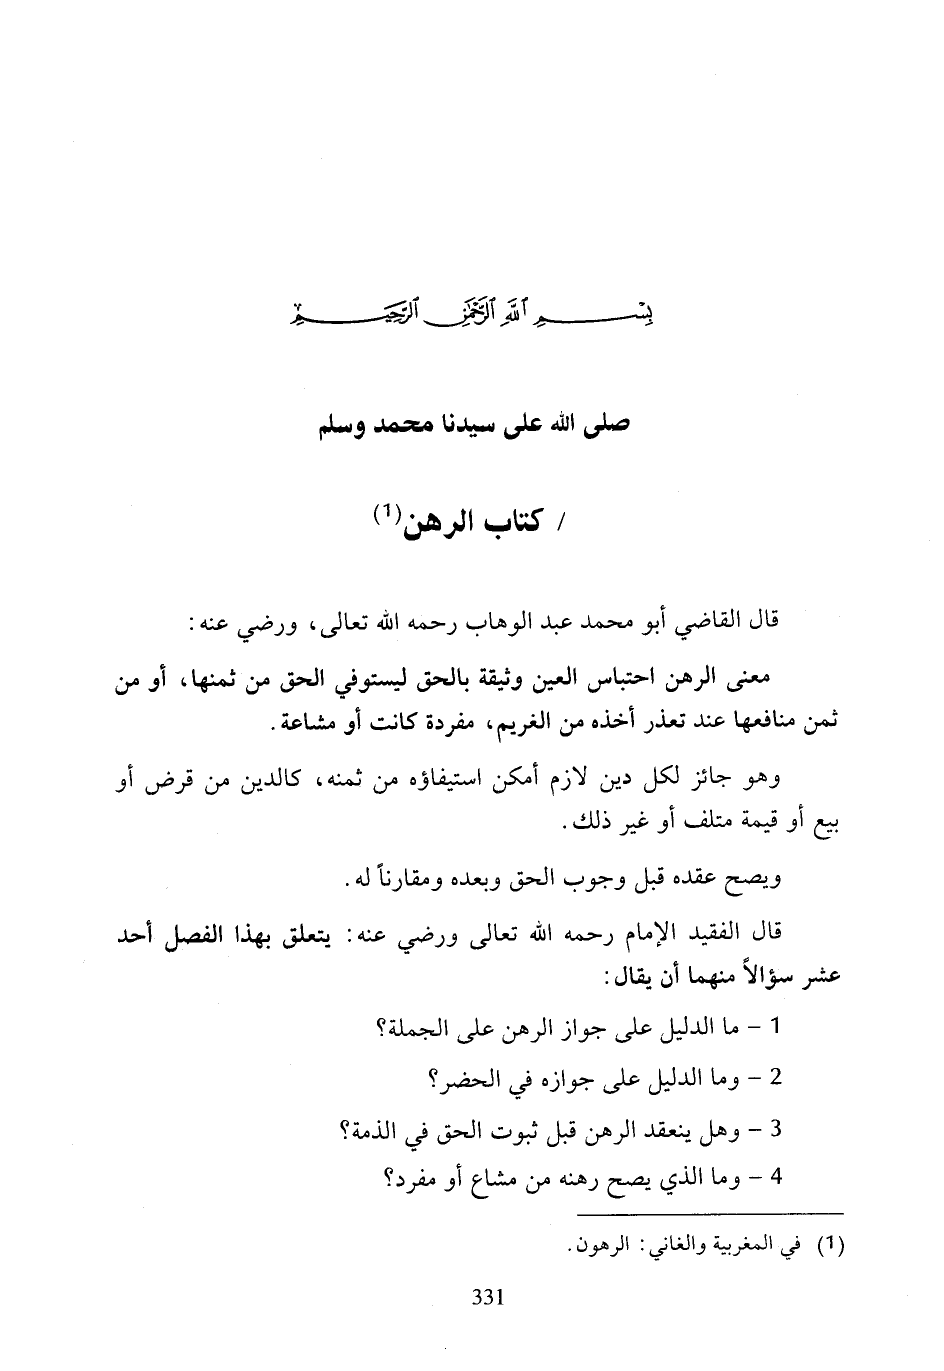 بسم الله الرحمن الرحيم
صلى الله على سيدنا محمد وسلم
/ كتاب الرهن(1)
قال القاضي أبو محمد عبد الوهاب رحمه الله تعالى، ورضي عنه:
معنى الرهن احتباس العين وثيقة بالحق ليستوفي الحق من ثمنها، أو من
ثمن منافعها عند تعذر أخذه من الغريم، مفردة كانت أو مشاعة.
وهو جائز لكل دين لازم أمكن استيفاؤه من ثمنه، كالدين من قرض أو
بيع أو قيمة متلف أو غير ذلك.
ويصح عقده قبل وجوب الحق وبعده ومقارناً له.
قال الفقيد الإمام رحمه الله تعالى ورضي عنه: يتعلق بهذا الفصل أحد
عشر سؤالاً منهما أن يقال:
1 - ما الدليل على جواز الرهن على الجملة؟
2 - وما الدليل على جوازه في الحضر؟
3 - وهل ينعقد الرهن قبل ثبوت الحق في الذمة؟
4 - وما الذي يصح رهنه من مشاع أو مفرد؟
(1) في المغربية والغاني: الرهون.
331